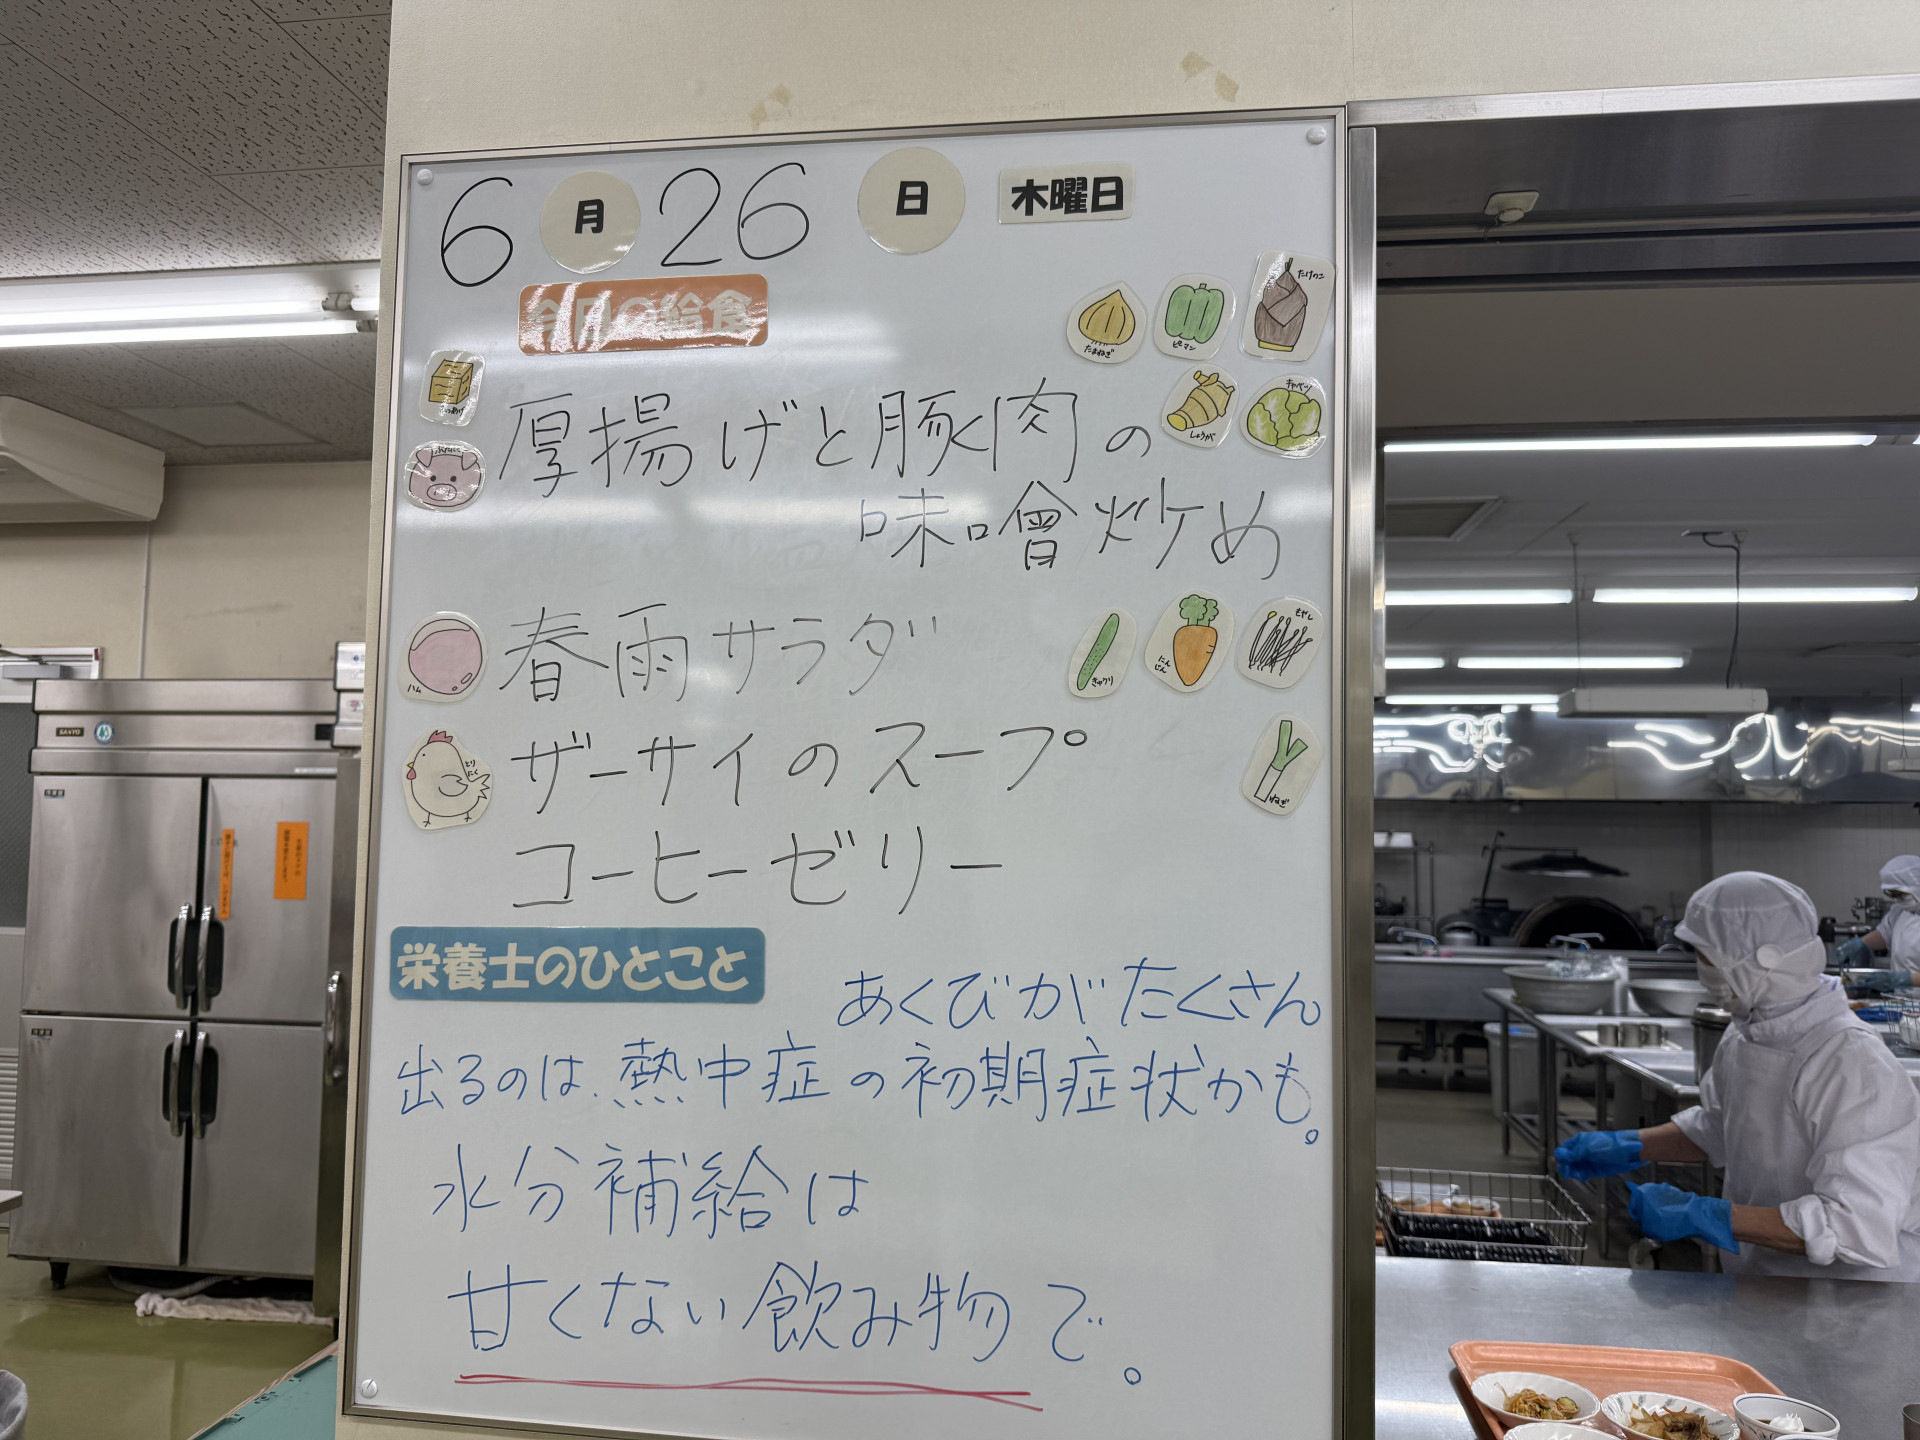 6月26日 木曜日
今日の給食
たまねぎ
ピーマン
たけのこ
あつあげ
ぶたにく
厚揚げと豚肉の
しょうが
キャベツ
味噌炒め
ハム
春雨サラダ
きゅうり
にんじん
もやし
とりにく
ザーサイのスープ
ねぎ
コーヒーゼリー
栄養士のひとこと
あくびがたくさん
出るのは、熱中症の初期症状かも。
水分補給は
甘くない飲み物で。
SANYO